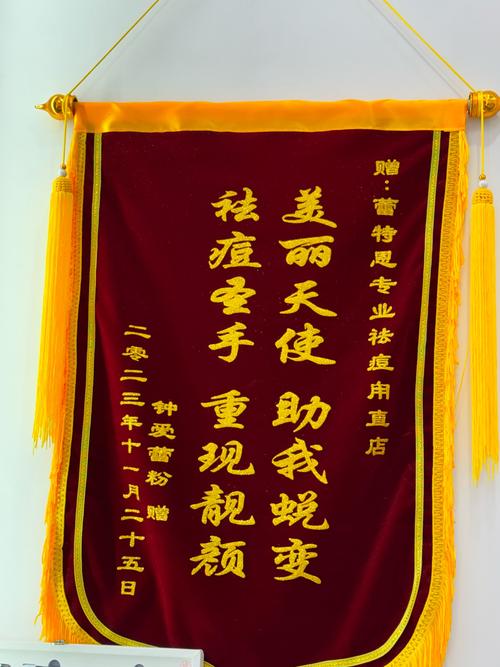 赠：蕾特恩专业祛痘甪直店
美丽天使 助我蜕变
祛痘圣手 重现靓颜
钟爱蕾粉 赠
二零二三年十一月二十五日